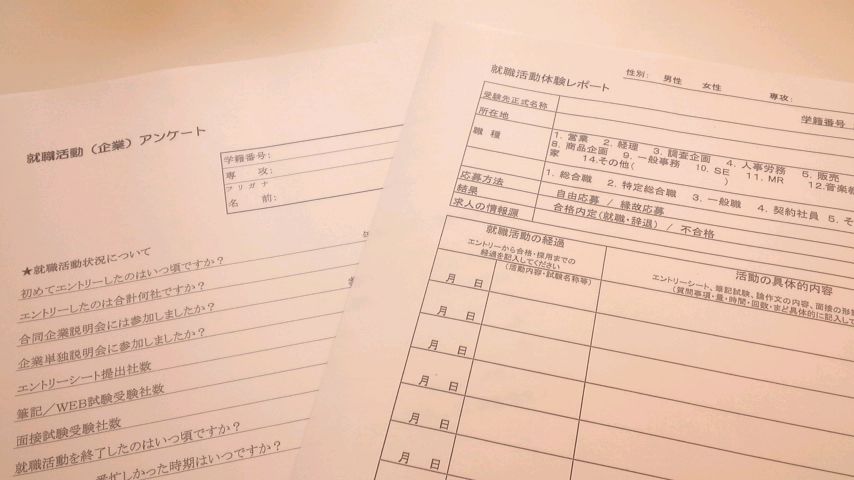 就職活動（企業）アンケート
学籍番号：
専　　攻：
フリガナ
名　　前：
★就職活動状況について
初めてエントリーしたのはいつ頃ですか？
エントリーしたのは合計何社ですか？
合同企業説明会には参加しましたか？
企業単独説明会に参加しましたか？
エントリーシート提出社数
筆記／WEB試験受験社数
面接試験受験社数
就職活動を終了したのはいつ頃ですか？
忙しかった時期はいつですか？
就職活動体験レポート
性別：　男性　　女性
専攻：
学籍番号
受験先正式名称
所在地
職 種
1. 営業　2. 経理　3. 調査企画　4. 人事労務　5. 販売
8. 商品企画　9. 一般事務　10. SE　11. MR　12.音楽
家　　14.その他（　　　　　　）
1. 総合職　2. 特定総合職　3. 一般職　4. 契約社員　5. そ
応募方法　自由応募 / 縁故応募
結果　合格内定（就職・辞退） / 不合格
求人の情報源
就職活動の経過
エントリーから合格・採用までの
経過を記入してください
（活動内容・試験名称等）
活動の具体的内容
エントリーシート、筆記試験、論作文の内容、面接の形
（質問事項・量・時間・回数・まど具体的に記入して
月　日
月　日
月　日
月　日
月　日
月　日